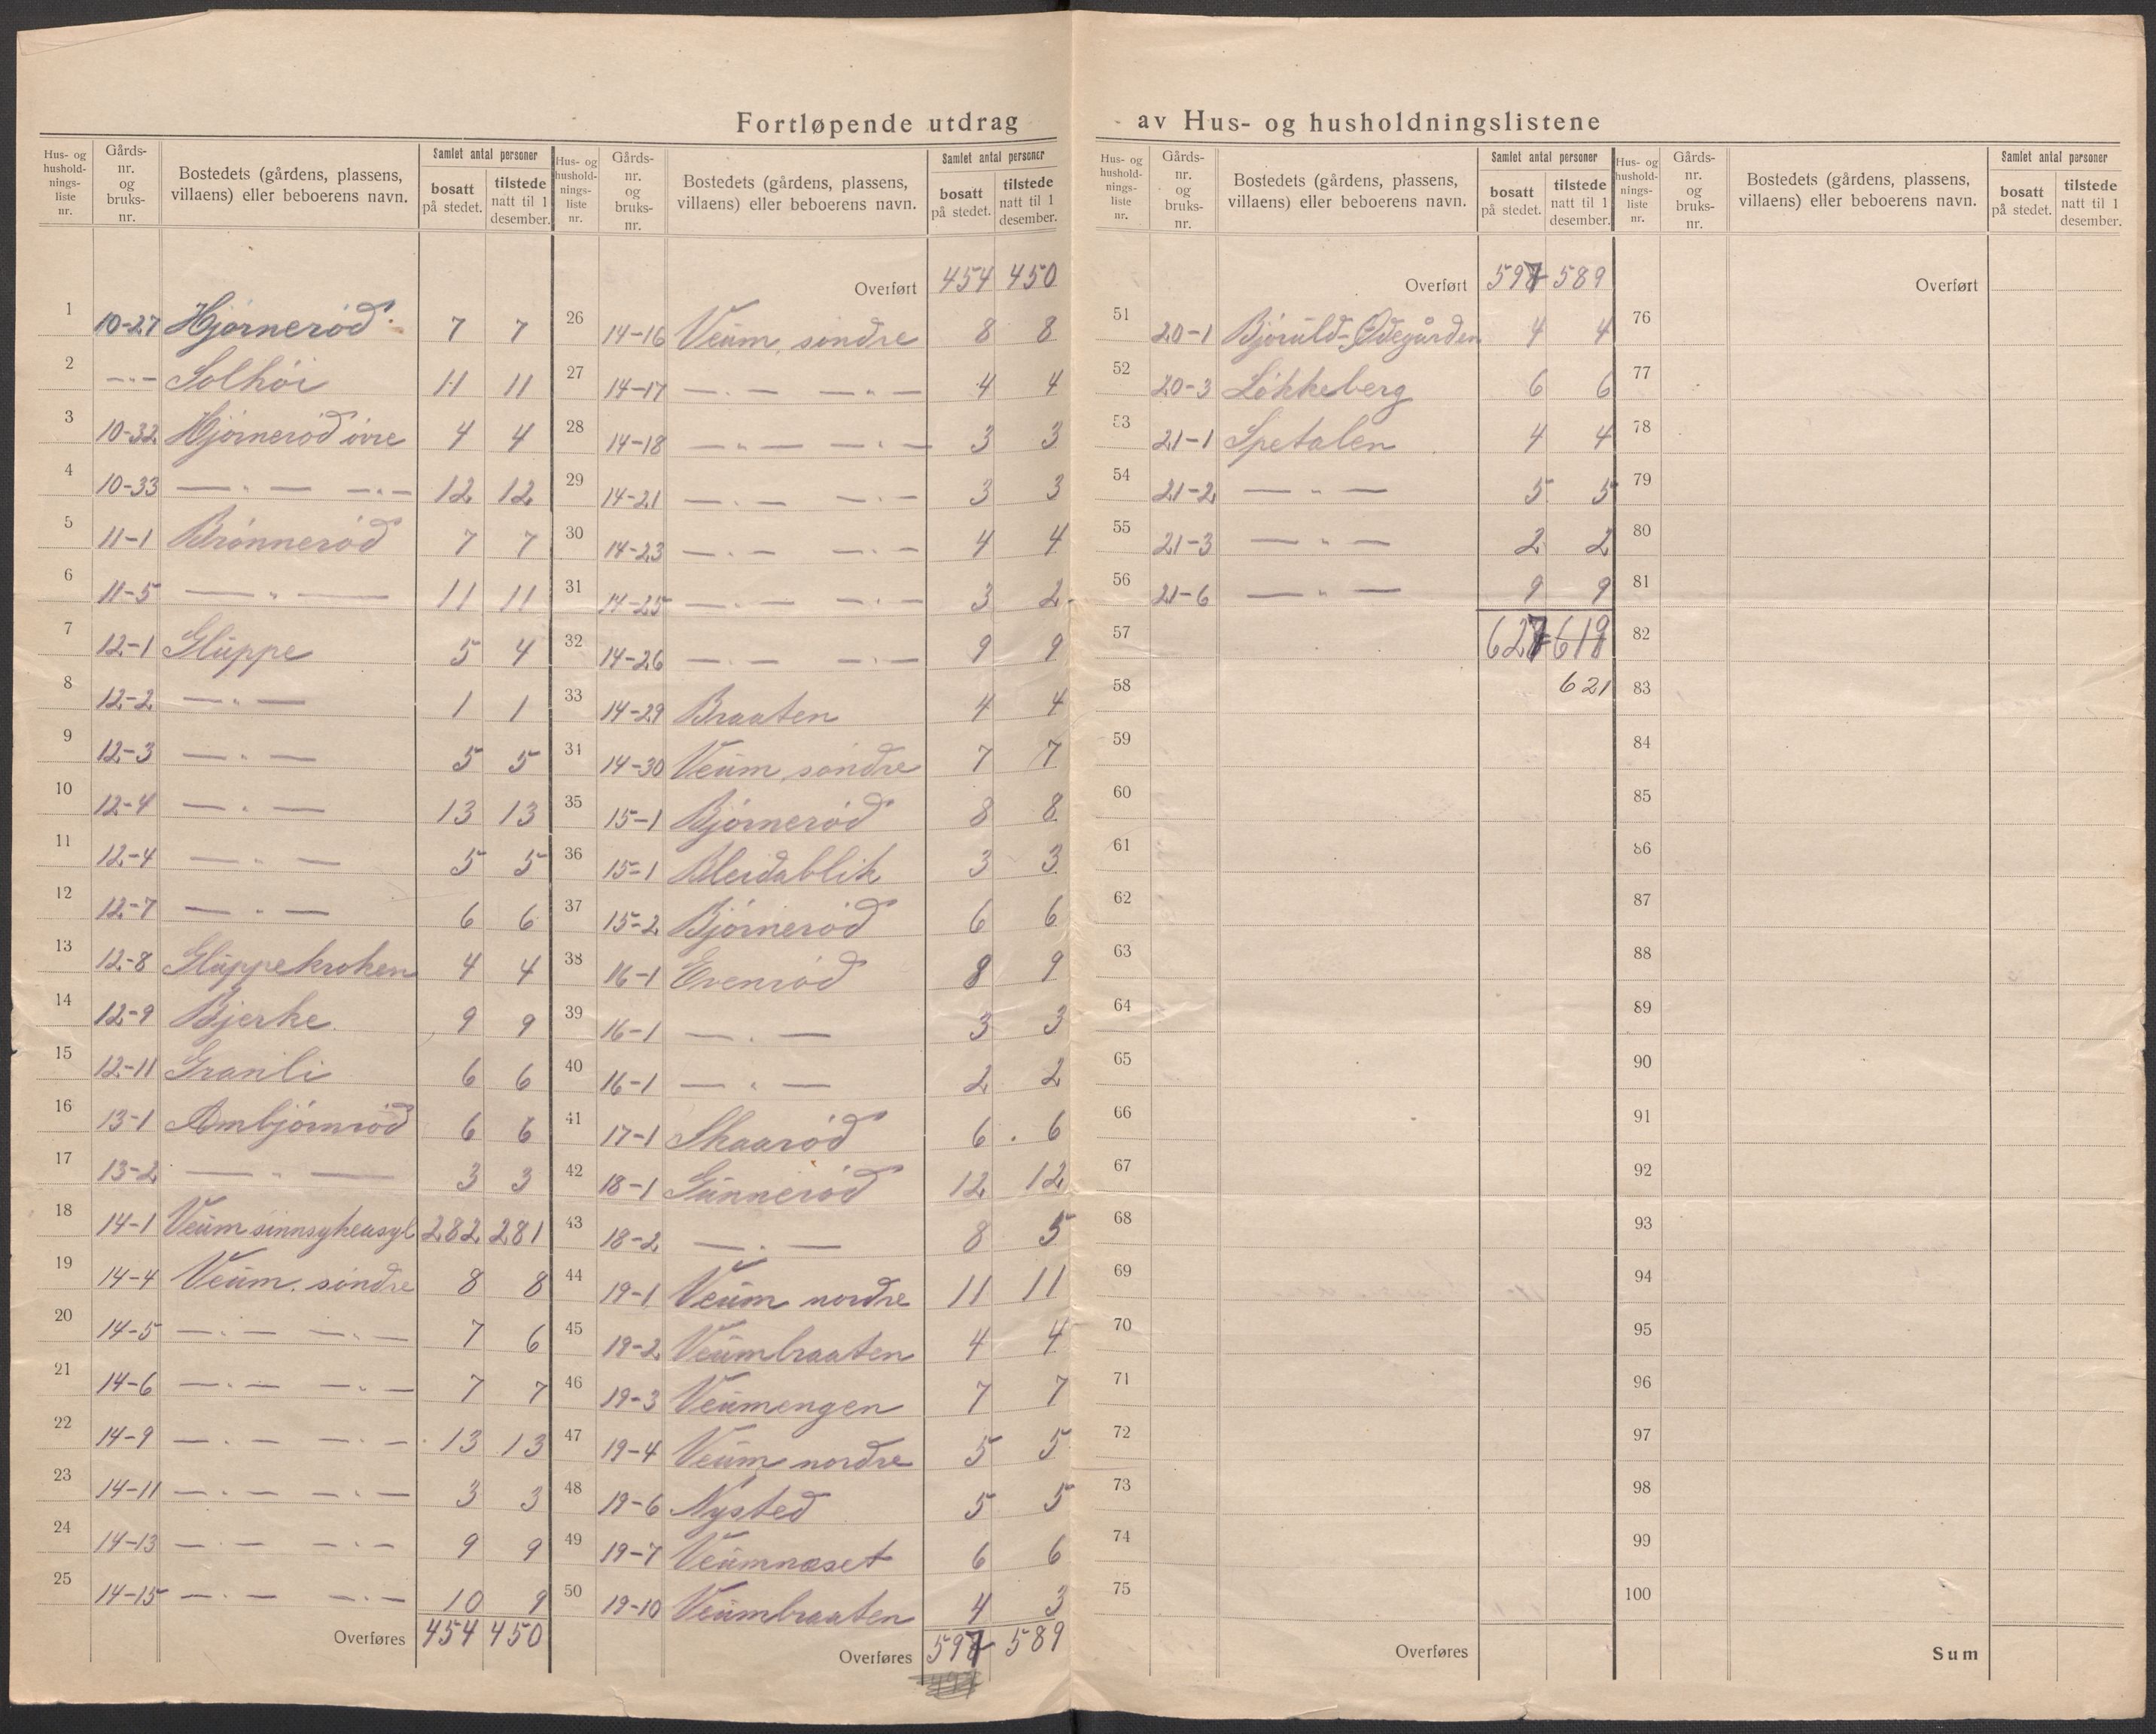 Fortløpende utdrag av Hus- og husholdningslistene
Hus- og hushold-nings-liste nr. Gårds-nr. og bruks-nr. Bostedets (gårdens, plassens, villaens) eller beboerens navn. Samlet antal personer bosatt på stedet. tilstede natt til 1 desember.
1 10-27 Hjørnerød 7 7
2 —„— Solhøi 11 11
3 10-32 Hjørnerød øvre 4 4
4 10-33 —„— —„— 12 12
5 11-1 Brønnerød 7 7
6 11-5 —„— 11 11
7 12-1 Gluppe 5 4
8 12-2 —„— 1 1
9 12-3 —„— 5 5
10 12-4 —„— 13 13
11 12-4 —„— 5 5
12 12-7 —„— 6 6
13 12-8 Gluppekroken 4 4
14 12-9 Bjerke 9 9
15 12-11 Granli 6 6
16 13-1 Ambjørnrød 6 6
17 13-2 —„— 3 3
18 14-1 Veum sinnsykeasyl 282 281
19 14-4 Veum søndre 8 8
20 14-5 —„— —„— 7 6
21 14-6 —„— —„— 7 7
22 14-9 —„— —„— 13 13
23 14-11 —„— —„— 3 3
24 14-13 —„— —„— 9 9
25 14-15 —„— —„— 10 9
Overføres 454 450
Hus- og hushold-nings-liste nr. Gårds-nr. og bruks-nr. Bostedets (gårdens, plassens, villaens) eller beboerens navn. Samlet antal personer bosatt på stedet. tilstede natt til 1 desember.
Overført 454 450
26 14-16 Veum søndre 8 8
27 14-17 —„— —„— 4 4
28 14-18 —„— —„— 3 3
29 14-21 —„— —„— 3 3
30 14-23 —„— —„— 4 4
31 14-25 —„— —„— 3 2
32 14-26 —„— —„— 9 9
33 14-29 Braaten 4 4
34 14-30 Veum søndre 7 7
35 15-1 Bjørnerød 8 8
36 15-1 Bleidablik 3 3
37 15-2 Bjørnerød 6 6
38 16-1 Evenrød 8 9
39 16-1 —„— 3 3
40 16-1 —„— 2 2
41 17-1 Skaarød 6 6
42 18-1 Gunnerød 12 12
43 18-2 —„— 8 5
44 19-1 Veum nordre 11 11
45 19-2 Veumbraaten 4 4
46 19-3 Veumengen 7 7
47 19-4 Veum nordre 5 5
48 19-6 Nysted 5 5
49 19-7 Veumnæset 6 6
50 19-10 Veumbraaten 4 3
Overføres 597 589
Hus- og hushold-nings-liste nr. Gårds-nr. og bruks-nr. Bostedets (gårdens, plassens, villaens) eller beboerens navn. Samlet antal personer bosatt på stedet. tilstede natt til 1 desember.
Overført 597 589
51 20-1 Bjøruld-Ødegården 4 4
52 20-3 Løkkeberg 6 6
53 21-1 Spetalen 4 4
54 21-2 —„— 5 5
55 21-3 —„— 2 2
56 21-6 —„— 9 9
57 627 619
58 621
59
60
61
62
63
64
65
66
67
68
69
70
71
72
73
74
75
Overføres
Hus- og hushold-nings-liste nr. Gårds-nr. og bruks-nr. Bostedets (gårdens, plassens, villaens) eller beboerens navn. Samlet antal personer bosatt på stedet. tilstede natt til 1 desember.
Overført
76
77
78
79
80
81
82
83
84
85
86
87
88
89
90
91
92
93
94
95
96
97
98
99
100
Sum